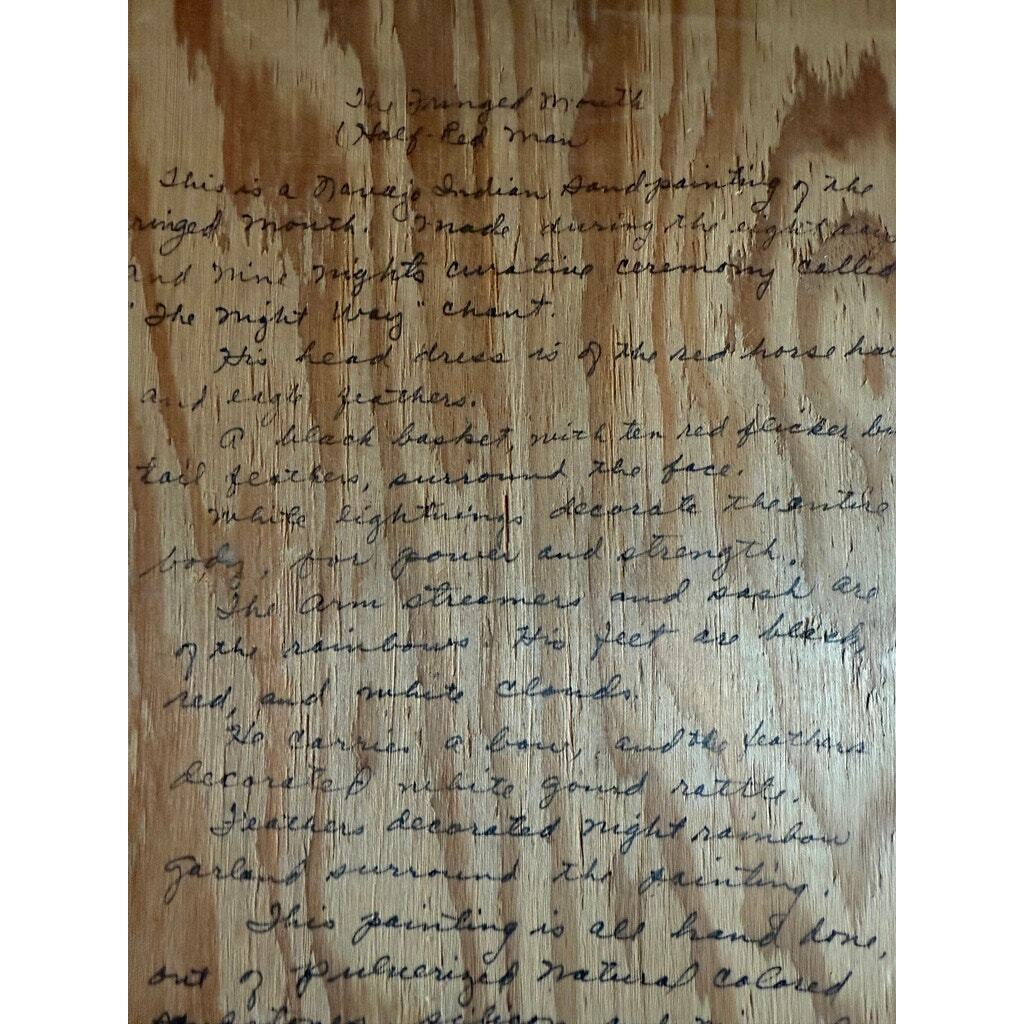 The Fringed Mouth
(Half-Red Man
This is a Navajo Indian Sandpainting of the
ringed Mouth. Made during the eight day
and nine nights curative ceremony called
"The Night Way" chant.
His head dress is of the red horse hai
and eagle feathers.
A black basket, with ten red flicker bi
tail feathers, surround the face.
White lightnings decorate the entire
body, for power and strength.
The arm streamers and sash are
of the rainbows. His feet are black,
red, and white clouds.
He carries a bow, and the feathers
decorated white gourd rattle.
Feathers decorated night rainbow
garland surround the painting.
This painting is all hand done,
out of pulverized natural colored